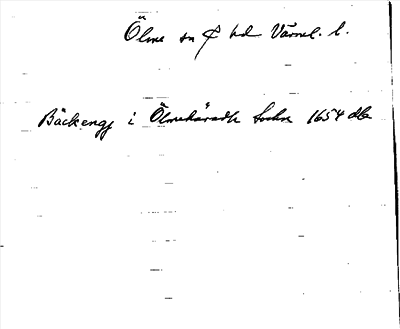 Ölme sn & hd Värml. l.
Bäckengj i Ölmehäradh Sochn 1654 db